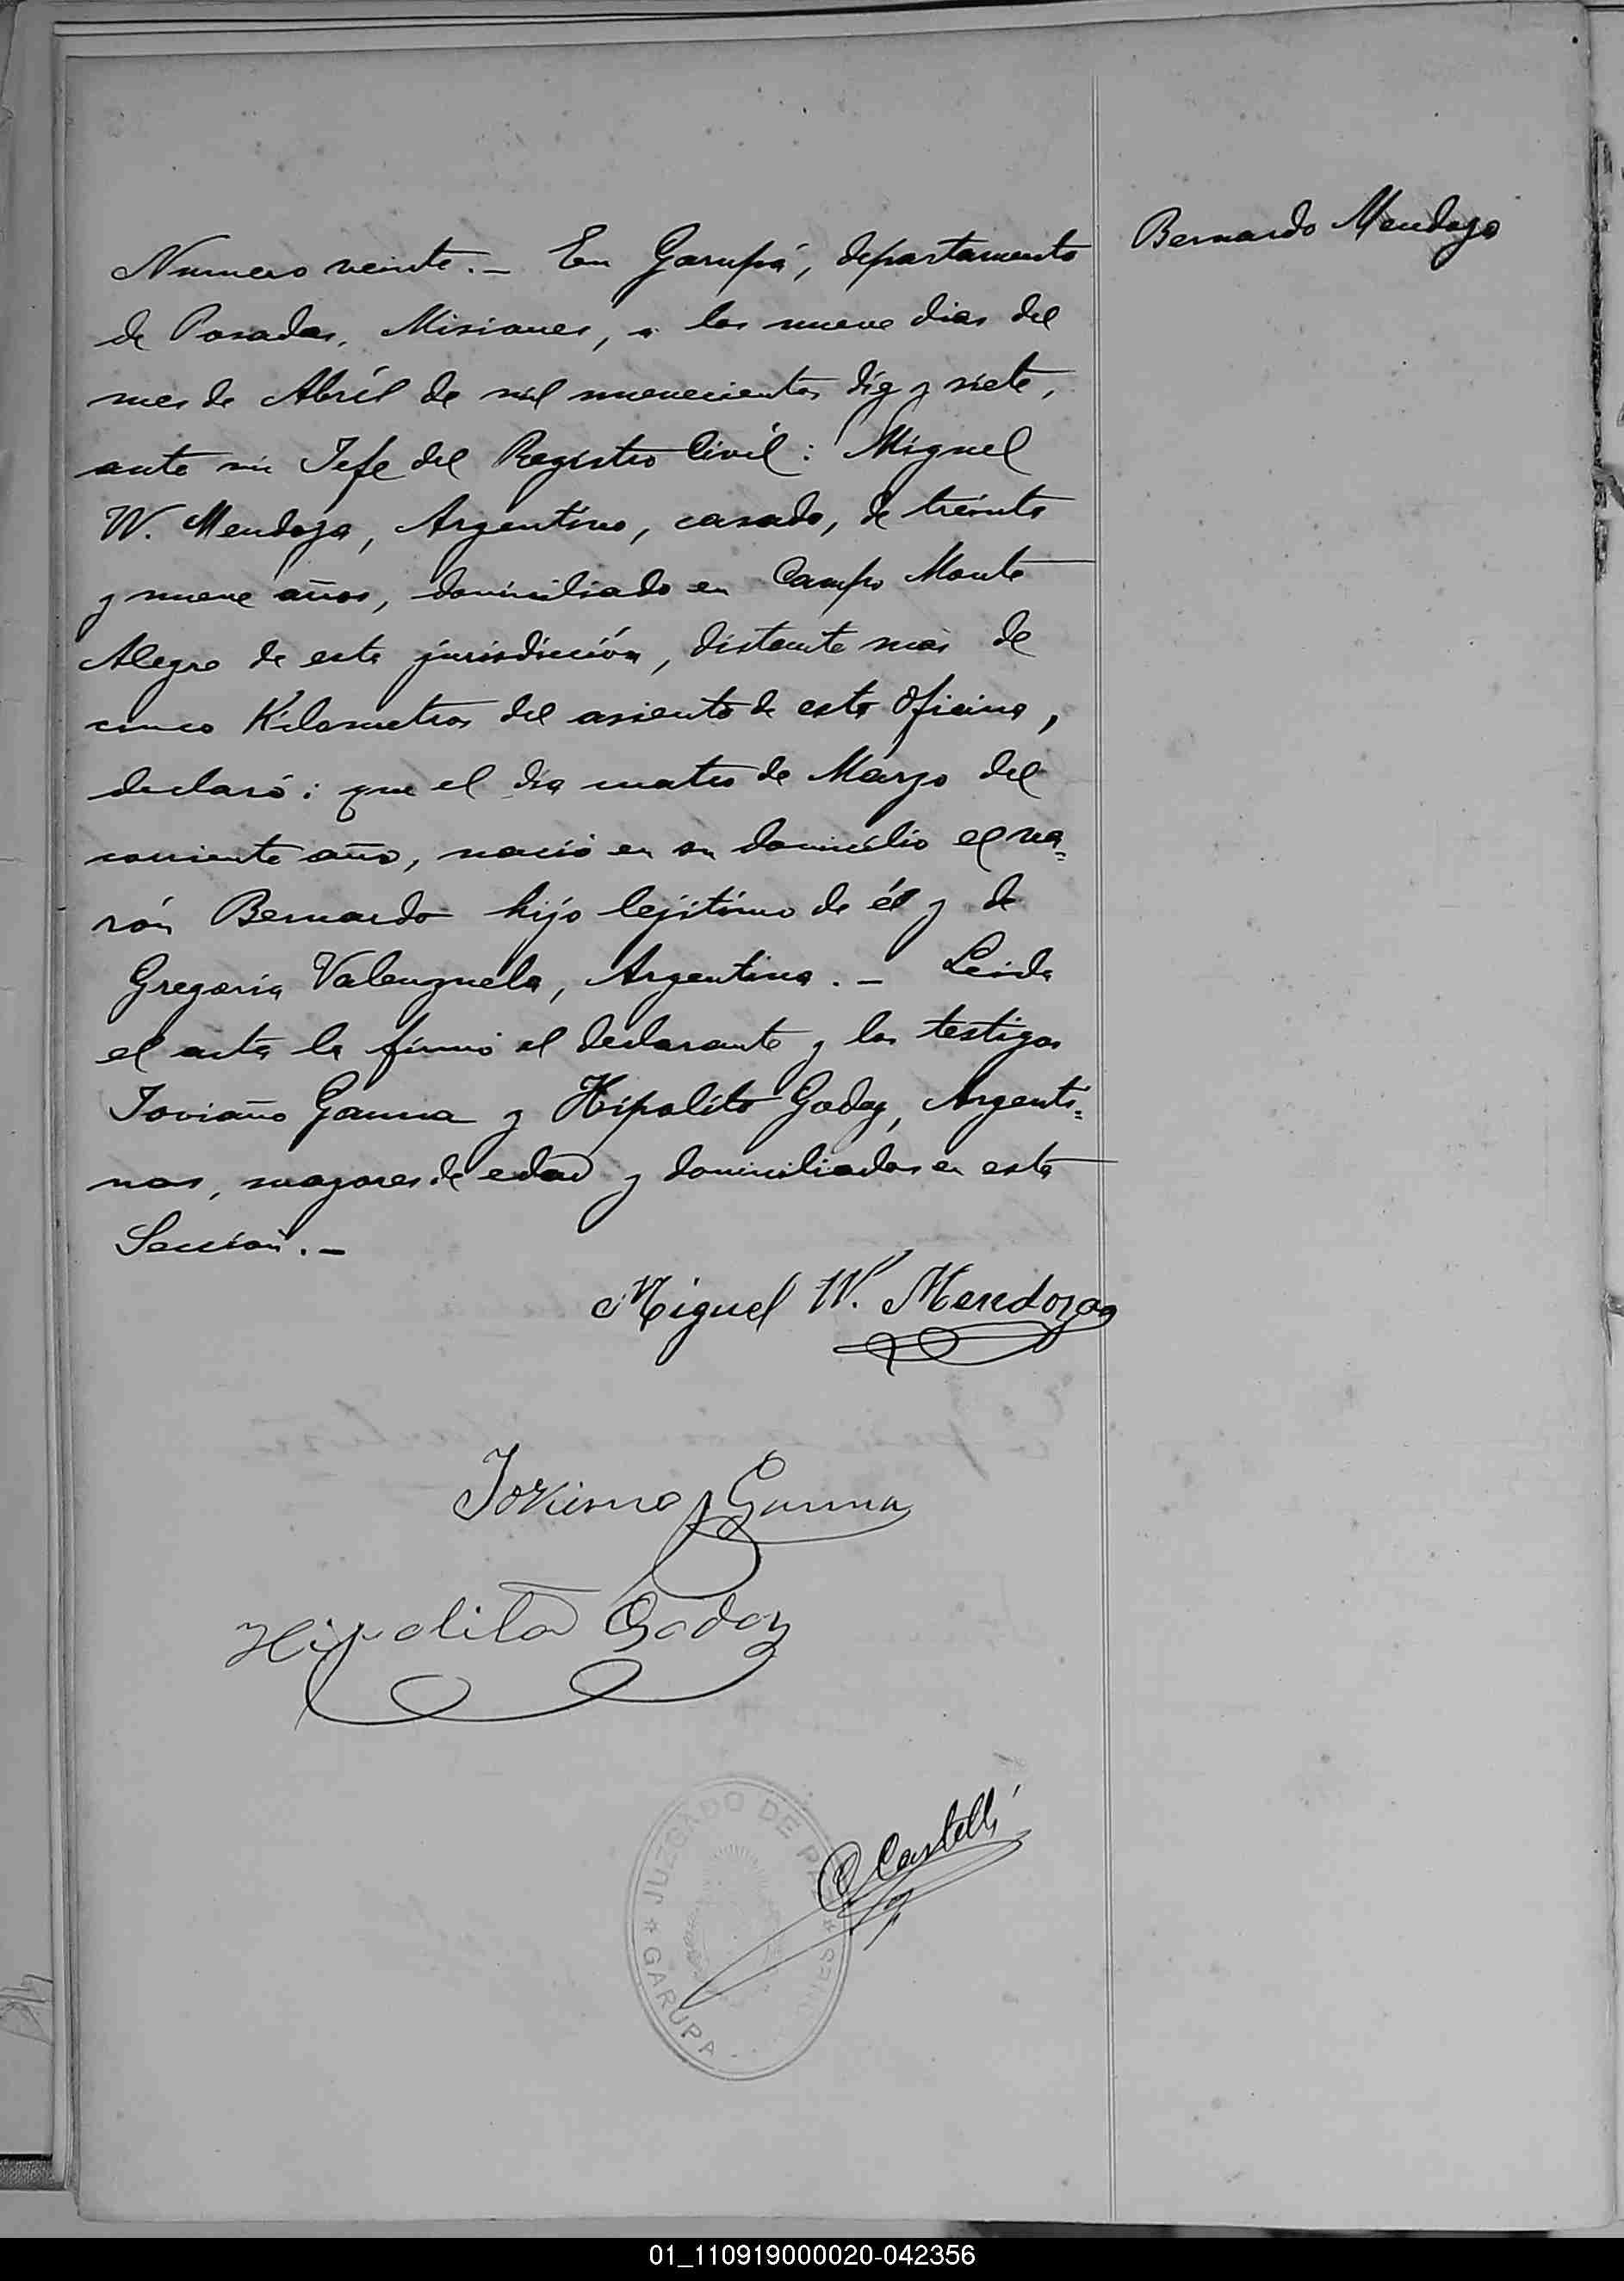 Bernardo Mendoza
Numero veinte.— En Garupá, departamento
de Posadas, Misiones, a los nueve dias del
mes de Abril de mil novecientos diez y siete,
ante mi Jefe del Registro Civil: Miguel
W. Mendoza, Argentino, casado, de treinta
y nueve años, domiciliado en Campo Monte
Alegre de esta jurisdicción, distante más de
cinco Kilometros del asiento de esta Oficina,
declaró: que el dia cuatro de Marzo del
corriente año, nació en su domicilio el va=
rón Bernardo hijo lejitimo de él y de
Gregoria Valenzuela, Argentina.— Leida
el acta la firmó el declarante y los testigos
Joviano Gauna y Hipolito Godoy, Argenti=
nos, mayores de edad y domiciliados en esta
Sección.—
Miguel W. Mendoza
Joviano Gauna
Hipolito Godoy
Castelli
JUZGADO DE PAZ
* GARUPA - MISIONES *
01_110919000020-042356